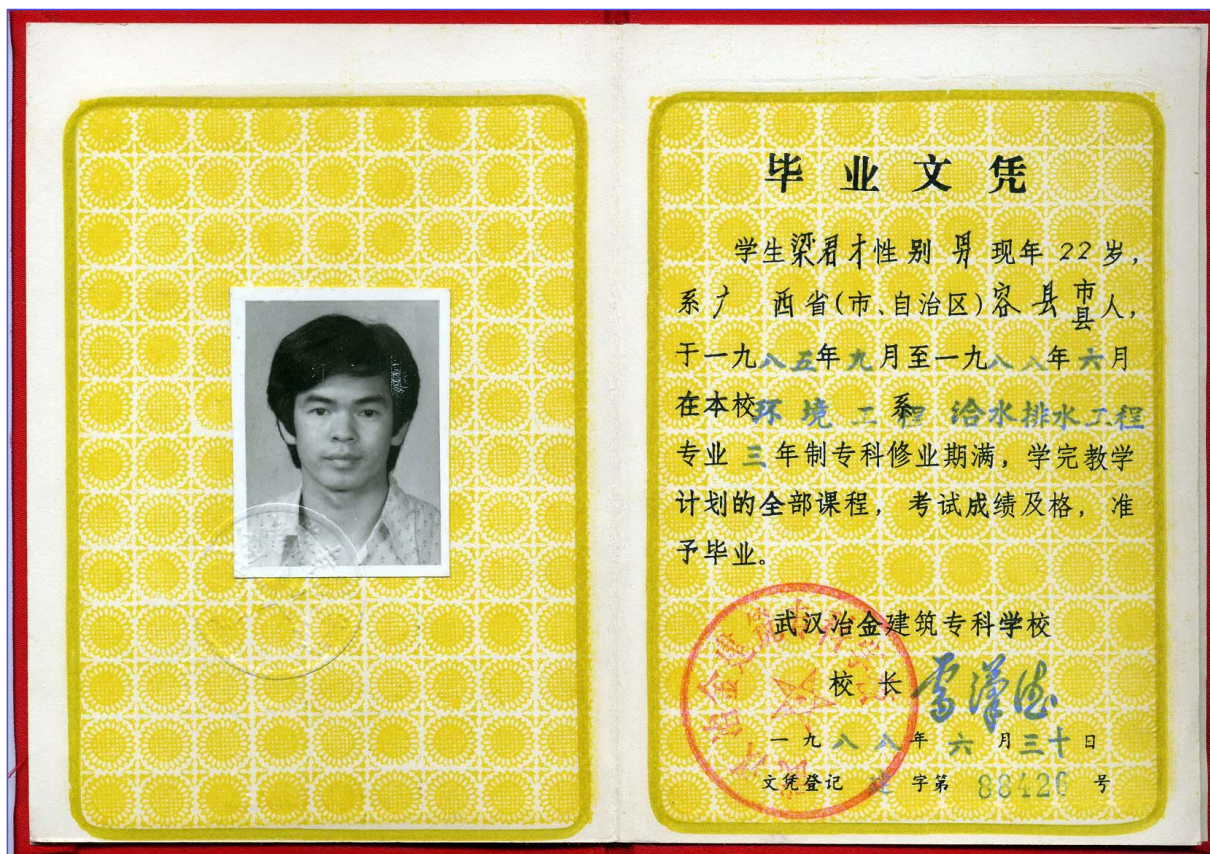 毕业文凭
学生梁君才性别 男 现年 22 岁，
系广 西省(市、自治区)容县市县人，
于一九八五年九月至一九八八年六月
在本校环境工程系给水排水工程
专业 三 年制专科修业期满，学完教学
计划的全部课程，考试成绩及格，准
予毕业。
武汉冶金建筑专科学校
校 长
一九八八年 六 月三十日
文凭登记 字第 88426 号